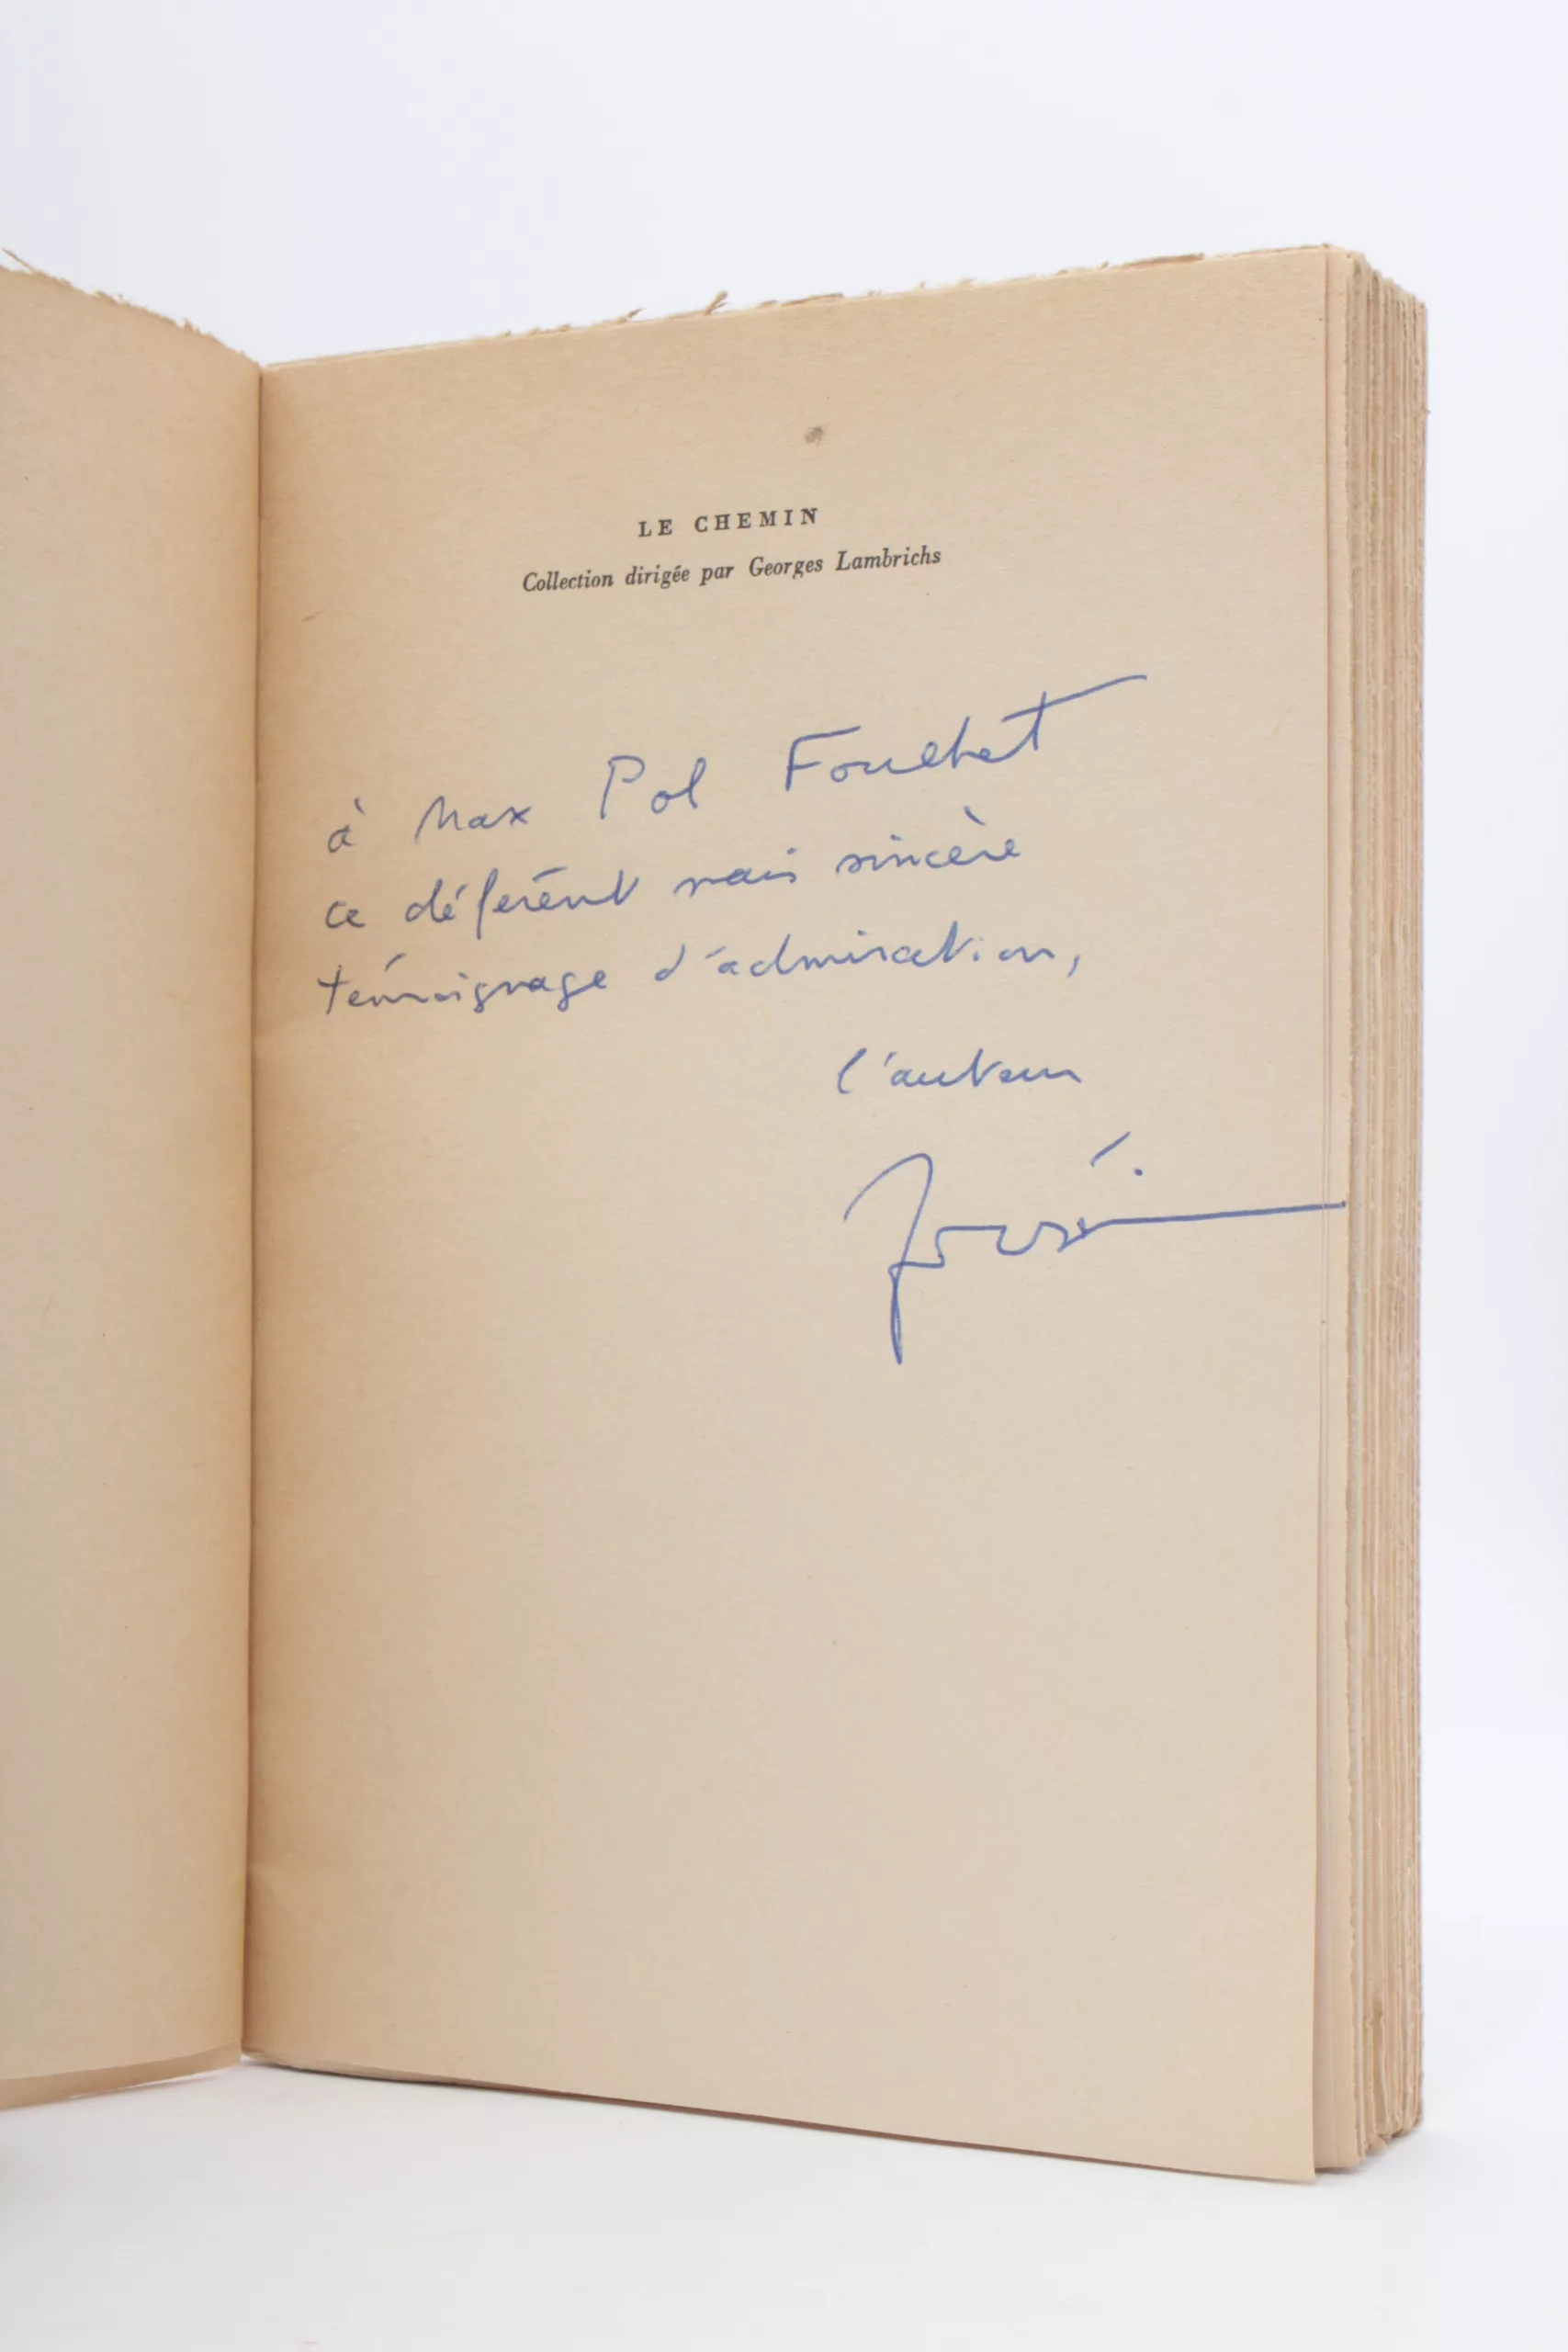 LE CHEMIN
Collection dirigée par Georges Lambrichs
à Max Pol Fouchet
ce déférent mais sincère
témoignage d'admiration,
l'auteur